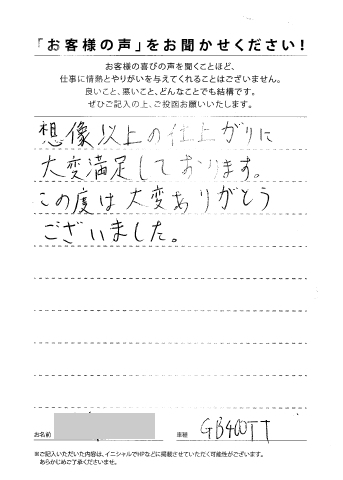 「お客様の声」をお聞かせください！
お客様の喜びの声を聞くことほど、
仕事に情熱とやりがいを与えてくれることはございません。
良いこと、悪いこと、どんなことでも結構です。
ぜひご記入の上、ご投函お願いいたします。
想像以上の仕上がりに
大変満足しております。
この度は大変ありがとう
ございました。
お名前
車種 GB400TT
※ご記入いただいた内容は、イニシャルでHPなどに掲載させていただく可能性がございます。
あらかじめご了承くださいませ。